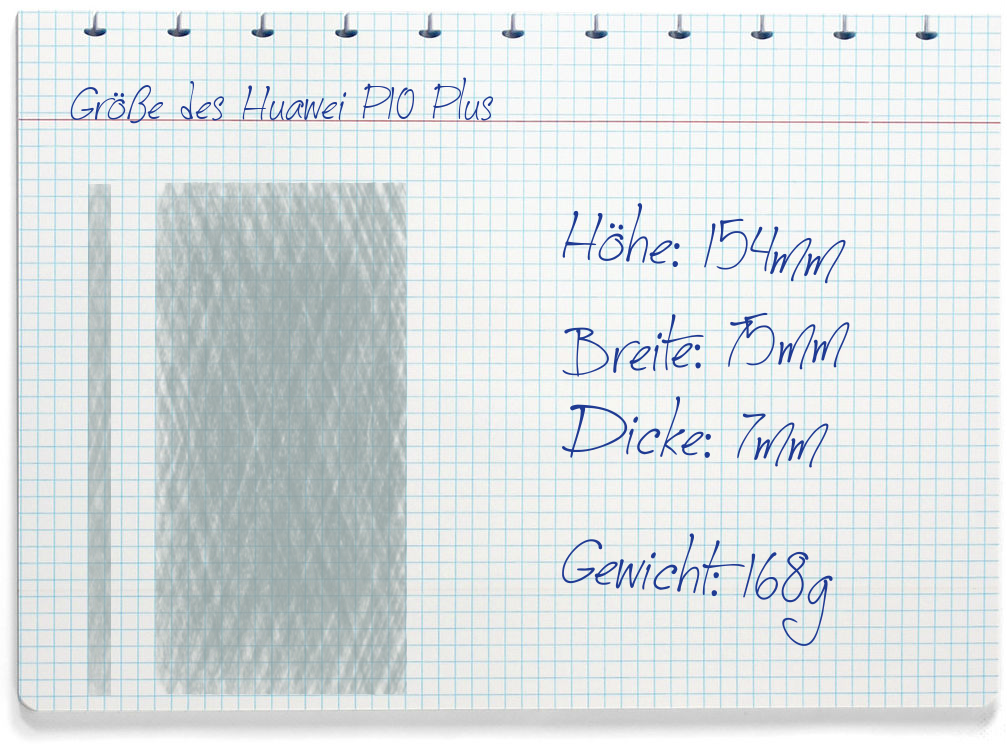 Größe des Huawei P10 Plus
Höhe: 154mm
Breite: 75mm
Dicke: 7mm
Gewicht: 168g